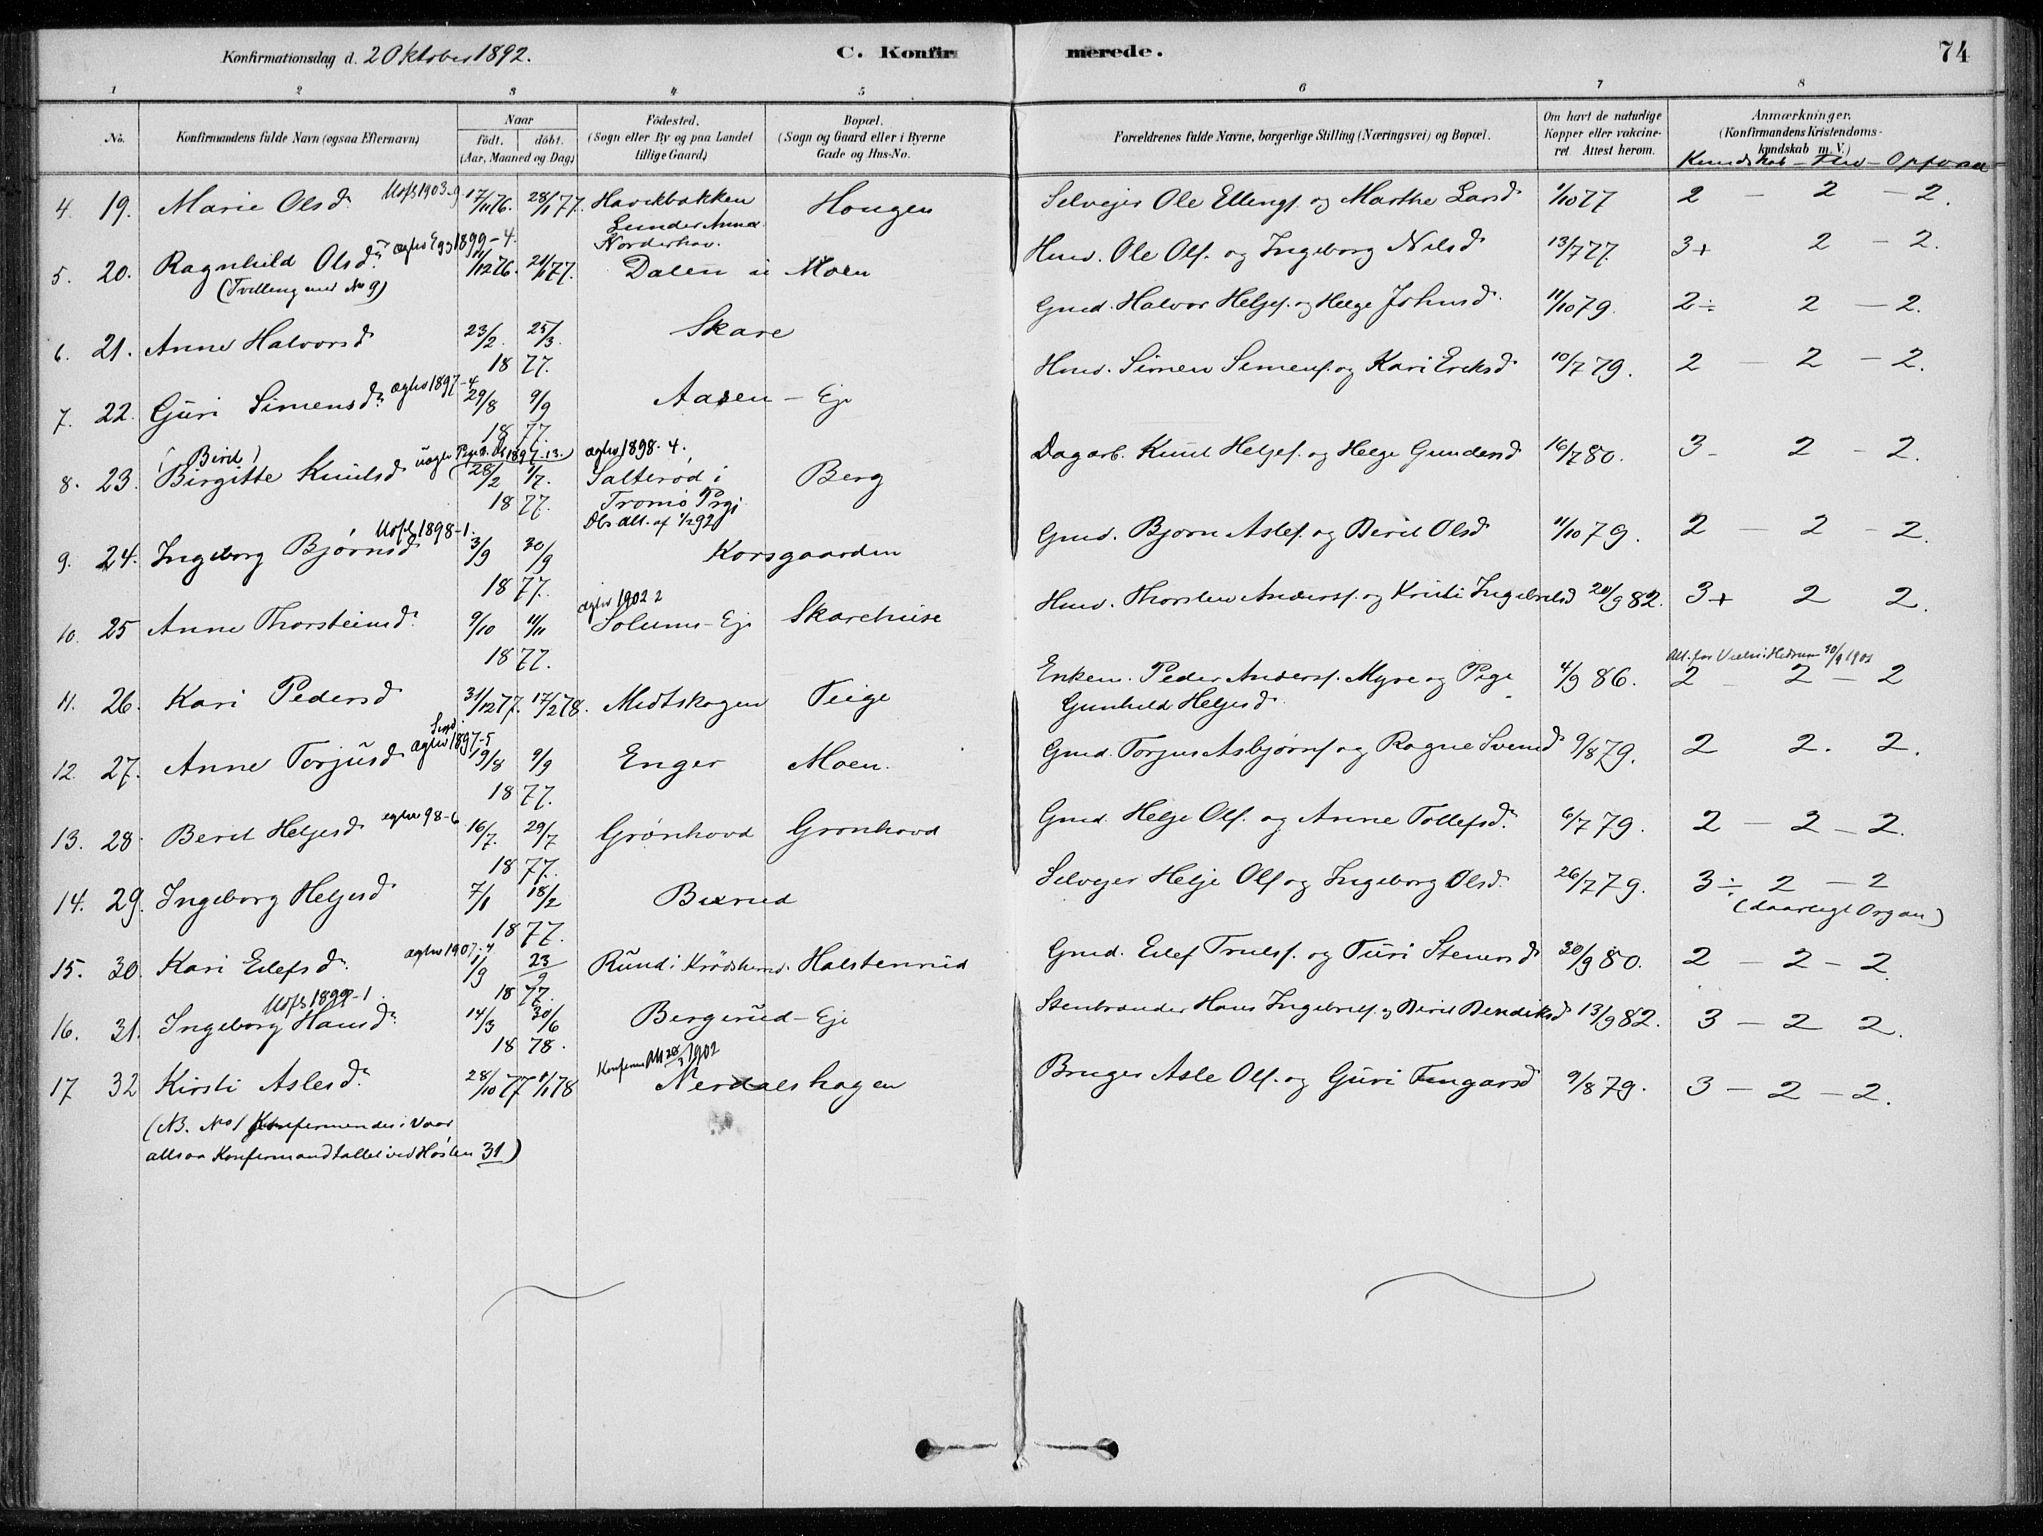 Konfirmationsdag d. 2 Oktober 1892.
C. Konfirmerede.
74
1 2 3 4 5 6 7 8
No. Konfirmandens fulde Navn (ogsaa Efternavn) Naar födt. döbt. (Aar, Maaned og Dag) Födested. (Sogn eller By og paa Landet tillige Gaard) Bopæl. (Sogn og Gaard eller i Byerne Gade og Hus-No. Forældrenes fulde Navne, borgerlige Stilling (Næringsvei) og Bopæl. Om havt de naturlige Kopper eller vakcineret Attest herom. Anmærkninger. (Konfirmandens Kristendomskundskab m. V.)
Kundskab - Flid - Opførsel
4. 19. Marie Olsd. 17/11 76. 28/1 77. Lunder Annex Norderhov. Hougen Selveier Ole Ellings. og Marthe Larsd. 1/10 77 2 - 2 - 2.
5. 20. Ragnhild Olsd. (Tvilling med No 9) 11/12 76. 21/1 77. Dalen u Moen Huusm. Ole Ols. og Ingeborg Nilsd. 13/7 77. 3+ 2 - 2.
6. 21. Anne Halvorsd. 23/2. 25/3. 1877. Skare Gmd. Halvor Heljes. og Helge Johnsd. 11/10 79. 2÷ 2 - 2.
7. 22. Guri Simensd. ægtev 1897-4 29/8 9/9 1877. Aasen - Eje Simen Simens. og Kari Eriksd. 10/7 79. 2 - 2 - 2.
8. 23. (Birit) Birgitte Knudsd. 28/2 1/7. 1877. ægtev 1898-4. Salterød i Tromø Prgj. Berg Dagarb. Knud Heljes. og Helge Gundersd. 16/7 80. 3- 2 - 2.
9. 24. Ingeborg Bjørnsd. 1898-1. 3/9 30/9 1877. Korsgaarden Gmd. Bjørn Aslef. og Berit Olsd. 11/10 79. 2 - 2 - 2.
10. 25 Anne Thorsteinsd. 9/10 11/11 1877. ægtev 1902 2 Solums - Eje Skarehuise Thorsten Anders. og Kristi Ingebretsd. 20/9 82. 3+ 2 2.
11. 26. Kari Pedersd. 31/12 77. 17/2 78. Midtskogen Teige Enkem. Peder Anders. Myre og Pige Gunhild Heljesd. 4/9 86. 2 - 2 - 2
12. 27. Anne Torjusd. ægtev 1897-5 19/8 9/9 1877. Enger Moen. Gmd. Torjus Asbjørns. og Ragne Svensd. 9/8 79. 2 2. 2.
13. 28. Berit Heljesd. ægtev 98-6 16/7. 29/7 1877. Grønhovd Grønhovd Gmd. Helje Ols. og Anne Tollefsd. 6/7 79. 2 - 2 - 2.
14. 29. Ingeborg Heljesd. 7/1 18/2 1877. Buxrud Selveier Helje Ols. og Ingeborg Olsd. 26/7 79. 3÷ 2 - 2 (daarligt Organ)
15. 30. Kari Eilefsd. ægtev 1907-4 1/9 23/9 1877. Rund i Krødsherred. Halstenrud Gmd. Eilef Truls. og Turi Stenersd. 30/9 80. 2 - 2 - 2.
16. 31. Ingeborg Hansd. 1899-1. 14/3 30/6 1878. Bergerud - Eje Stenbrænder Hans Ingebrets. og Berit Bendiksd. 13/9 82. 3 - 2 2.
17 32 Kirsti Aslesd. 28/10 77 1/1 78 1902 Nerdalshagen Bruger Asle Ols. og Guri Fingarsd. 9/8 79. 3 - 2 - 2.
(NB. No 1 Konfirmeredes i Vaar
altsaa Konfirmandtallet ved Høsten 31)